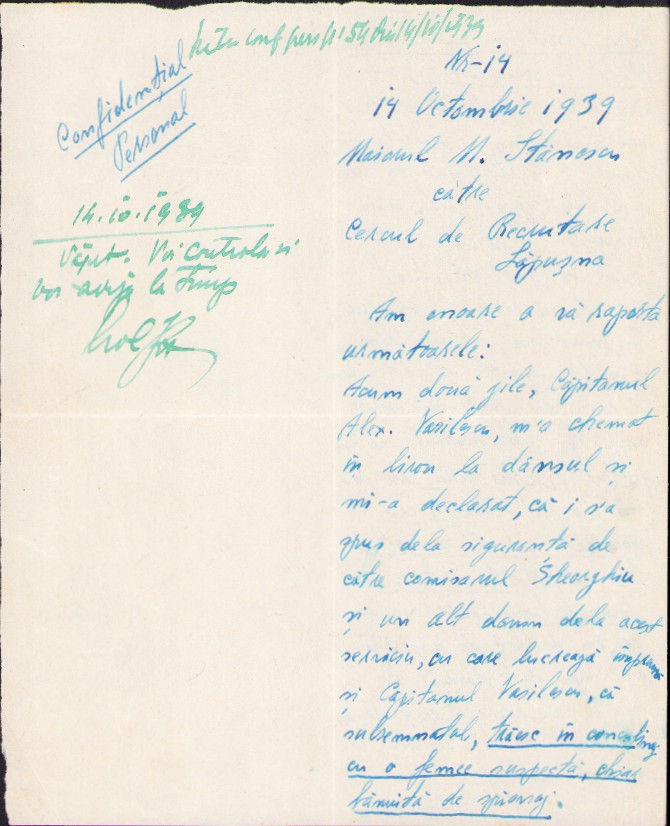 conf pers No 54 din 14/10/1939
Confidențial
Personal
14.10.1939
Văzut. Voi controla și
voi aviza la timp
Nr-14
14 Octombrie 1939
Maiorul M. Stănescu
către
Cercul de Recrutare
Lăpușna
Am onoare a vă raporta
următoarele:
Acum două zile, Căpitanul
Alex. Vasilescu, m'a chemat
în birou la dânsul și
mi-a declarat, că i s'a
spus dela siguranță de
către comisarul Gheorghiu
și un alt domn dela acest
serviciu, cu care lucrează împreună
și Căpitanul Vasilescu, că
subsemnatul, trăesc în concubinaj
cu o femee suspectă, chiar
bănuită de spionaj.